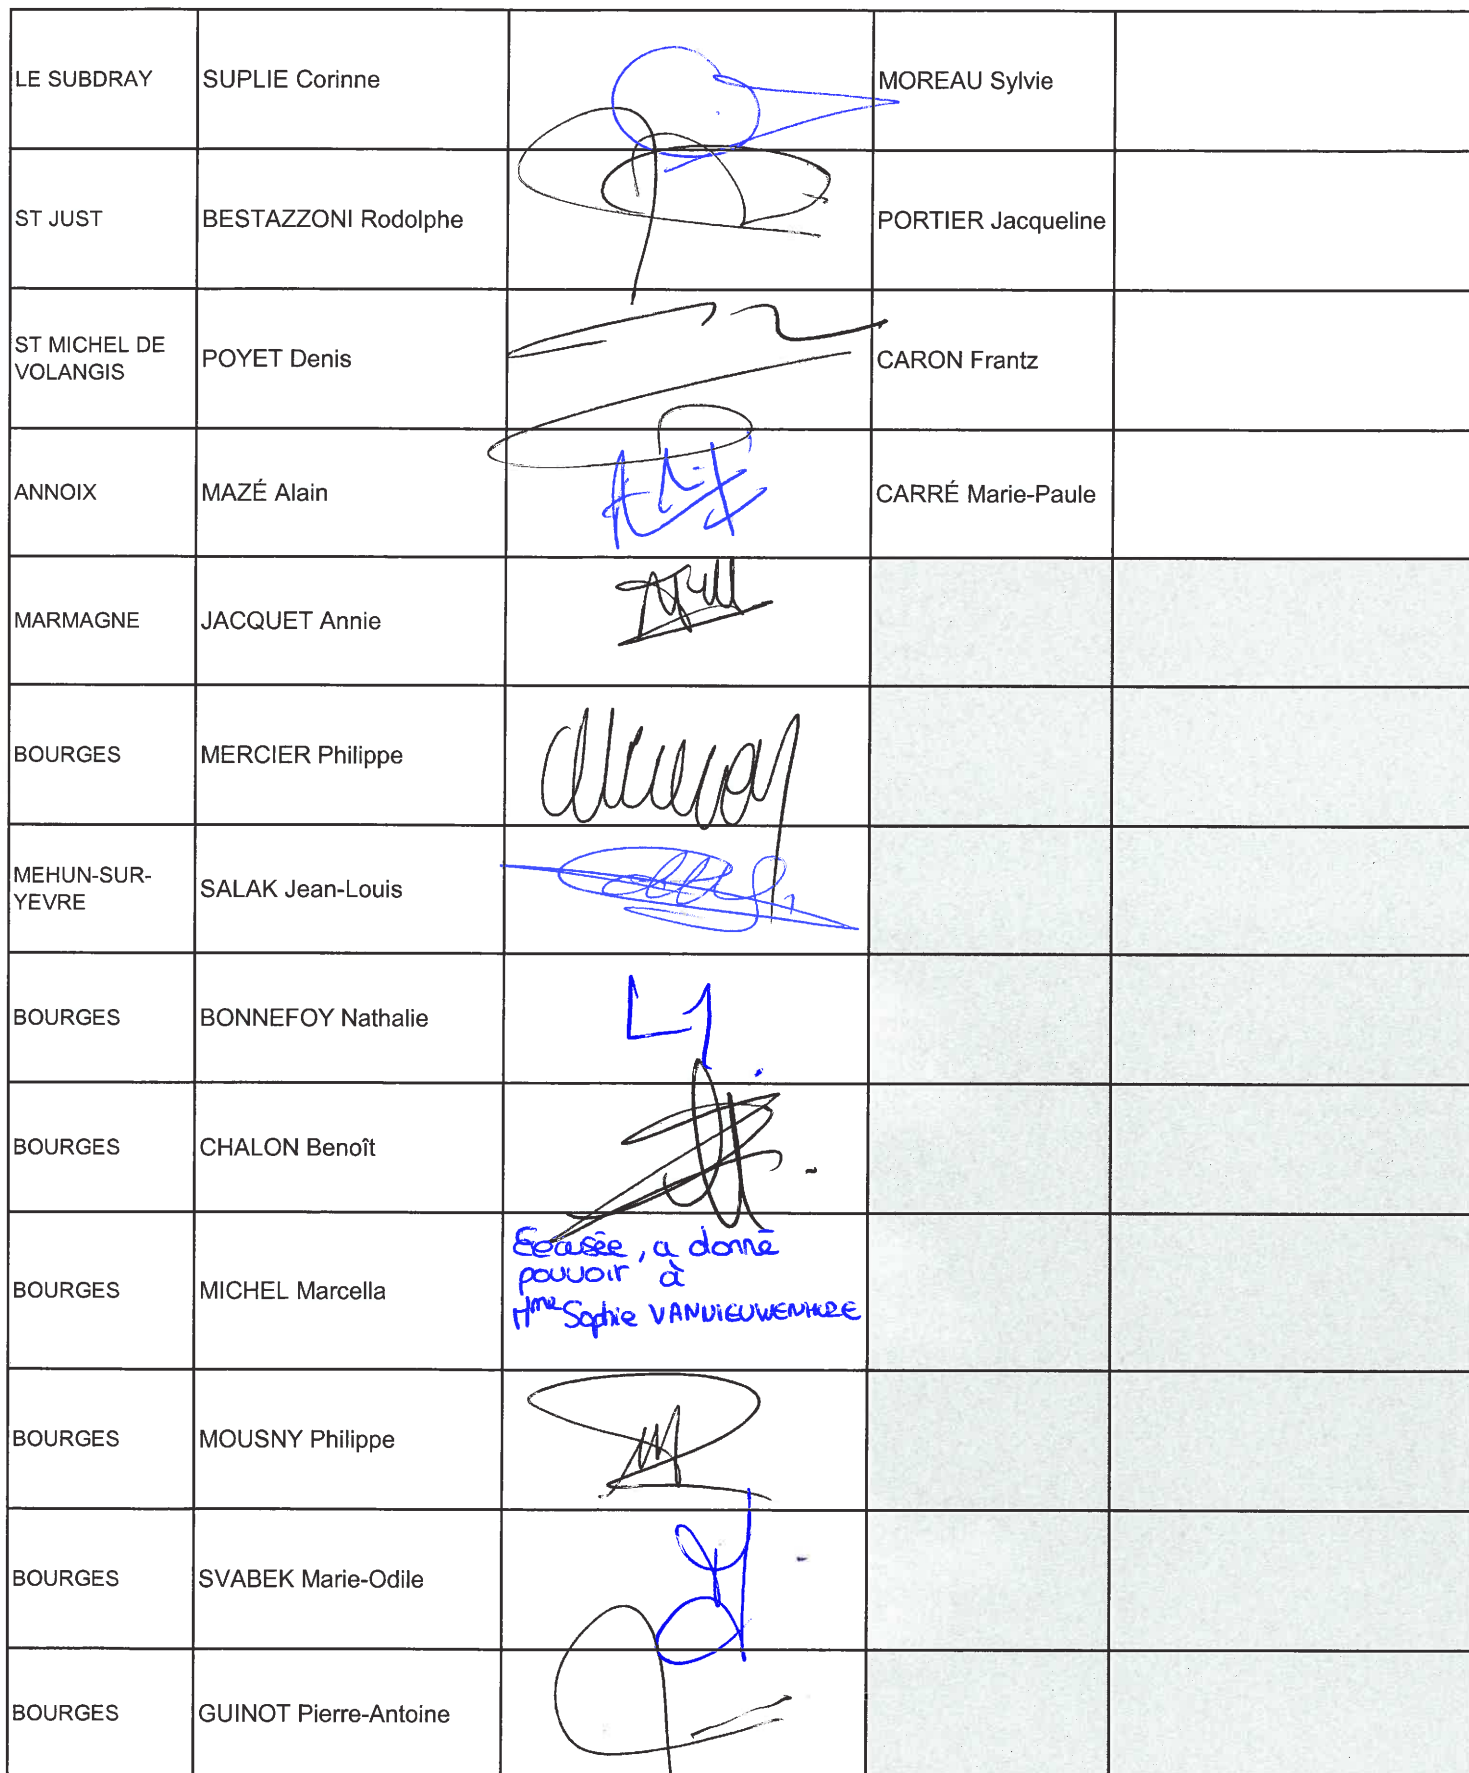 LE SUBDRAY SUPLIE Corinne MOREAU Sylvie
ST JUST BESTAZZONI Rodolphe PORTIER Jacqueline
ST MICHEL DE
VOLANGIS POYET Denis CARON Frantz
ANNOIX MAZÉ Alain CARRÉ Marie-Paule
MARMAGNE JACQUET Annie
BOURGES MERCIER Philippe
MEHUN-SUR-
YEVRE SALAK Jean-Louis
BOURGES BONNEFOY Nathalie
BOURGES CHALON Benoît
BOURGES MICHEL Marcella
Excusée, a donné
pouvoir à
Mme Sophie VANNIEUWENHUZE
BOURGES MOUSNY Philippe
BOURGES SVABEK Marie-Odile
BOURGES GUINOT Pierre-Antoine